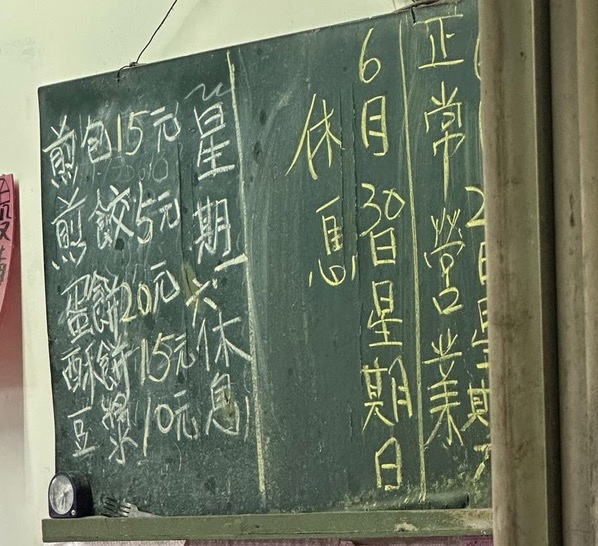 日星期
正常營業
6月30日星期日
休息
星期六休息
煎包15元
煎餃5元
蛋餅20元
酥餅15元
豆漿10元